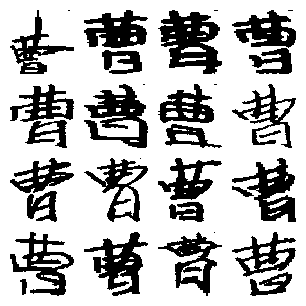 曹曹曹曹
曹曹曹曹
曹曹曹曹
曹曹曹曹